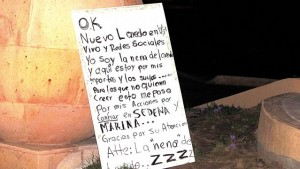 OK
Nuevo Laredo en
Vivo y Redes Sociales.
Yo soy la nena de Laredo
y aqui estoy por mis
reportes y los suyos....
Para los que no quieren
Creer esto me paso
Por mis Acciones por
Confiar en SEDENA y
MARINA....
Gracias por su Atencion
Atte: La "nena" de
ZZZZ